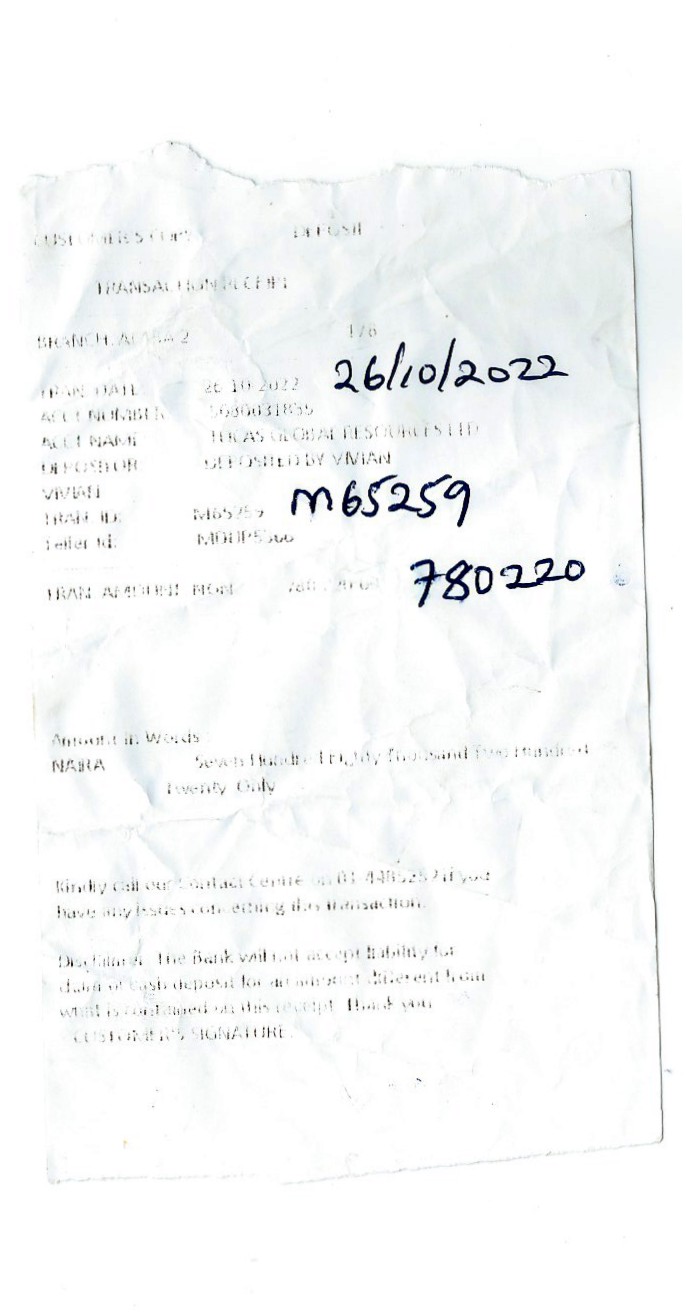 CUSTOMER'S COPY DEPOSIT
TRANSACTION RECEIPT
BRANCH: 2 176
TRAN DATE 26-10-2022 26/10/2022
ACCT NUMBER
ACCT NAME GLOBAL RESOURCES LTD
DEPOSITOR DEPOSITED BY VIVIAN
VIVIAN
TRAN ID: M65259 M65259
Teller Id:
TRAN AMOUNT NGN 780220
Amount in Words
NAIRA Seven Hundred Eighty Thousand Two Hundred
Twenty Only
Kindly call our Contact Centre on if you
have any issues concerning this transaction.
Disclaimer: The Bank will not accept liability for
claim of cash deposit for an amount different from
what is contained on this receipt. Thank you
CUSTOMER'S SIGNATURE: